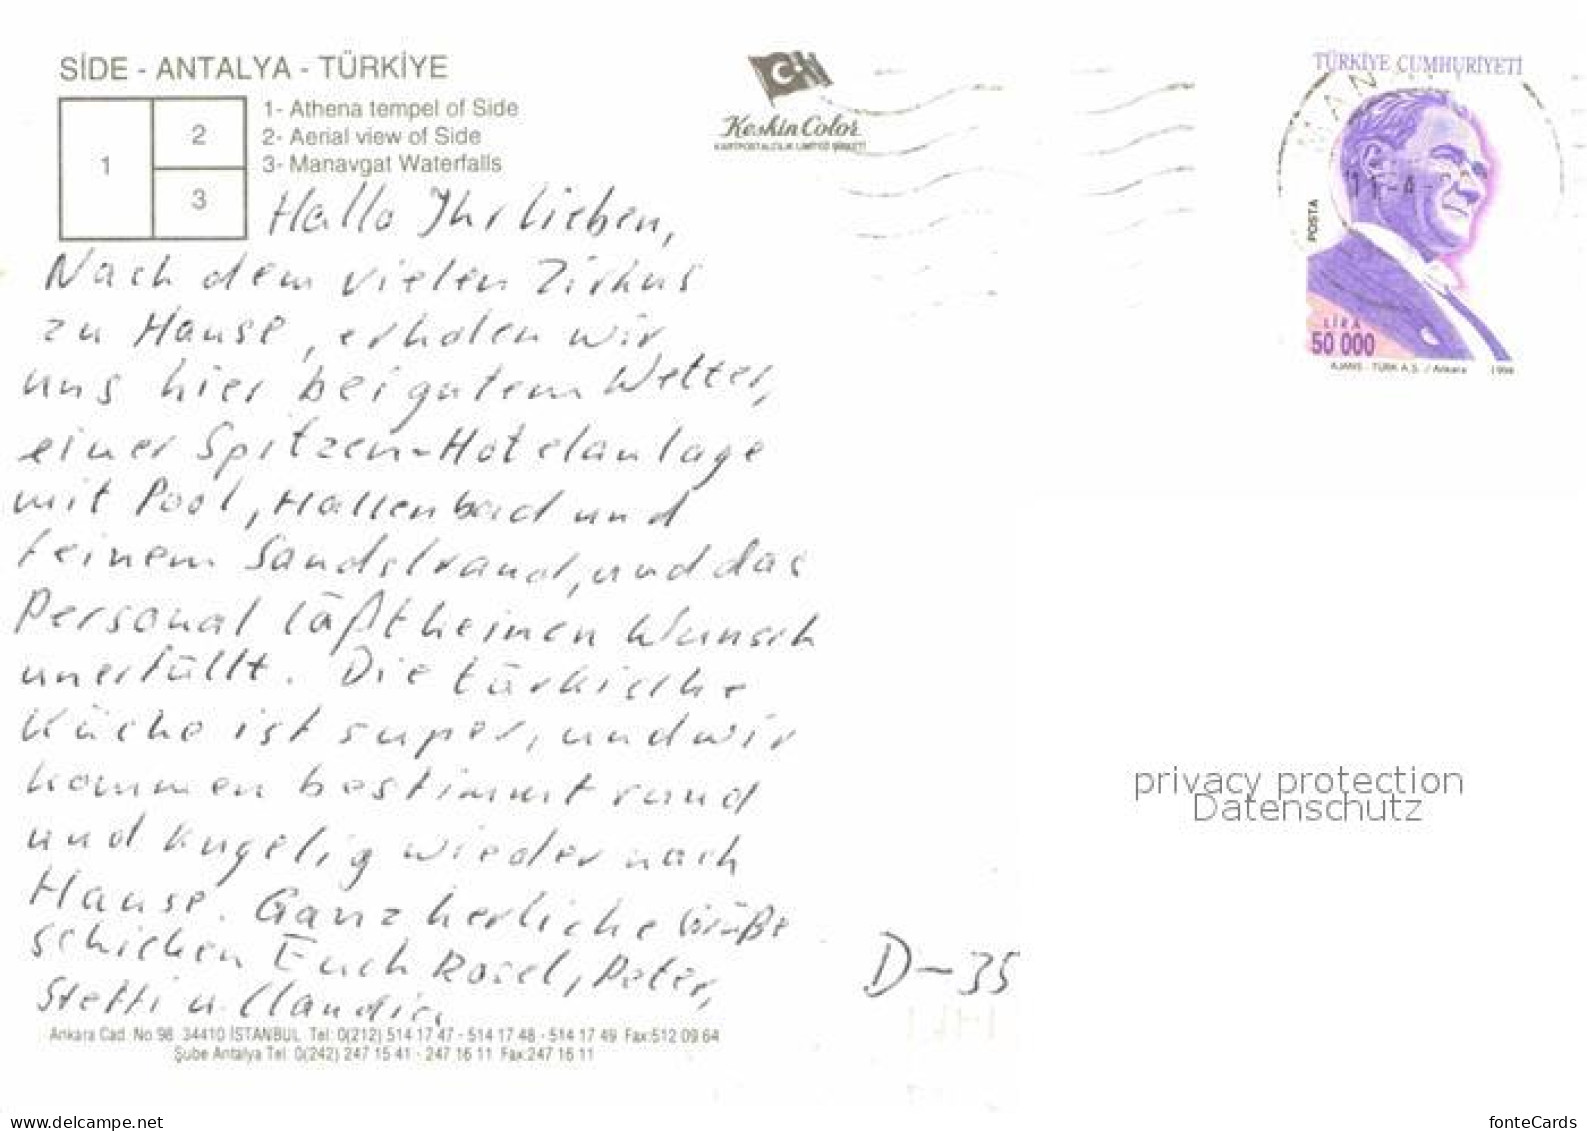 SİDE - ANTALYA - TÜRKİYE
1
2
3
1- Athena tempel of Side
2- Aerial view of Side
3- Manavgat Waterfalls
Keskin Color
KARTPOSTALCILIK LİMİTED ŞİRKETİ
TÜRKİYE CUMHURİYETİ
MAN
11-4-
POSTA
LİRA
50 000
AJANS - TÜRK A.Ş. / Ankara 1996
Hallo Ihr lieben,
Nach dem vielen Zirkus
zu Hause, erholen wir
uns hier bei gutem Wetter,
einer Spitzen-Hotelanlage
mit Pool, Hallenbad und
feinem Sandstrand, und das
Personal läßt keinen Wunsch
unerfüllt. Die türkische
Küche ist super, und wir
kommen bestimmt rund
und kugelig wieder nach
Hause. Ganz herliche Grüße
schicken Euch Rosel, Peter,
Steffi u. Claudia
D-35
privacy protection
Datenschutz
Ankara Cad. No 98 34410 İSTANBUL Tel: 0(212) 514 17 47 - 514 17 48 - 514 17 49 Fax:512 09 64
Şube Antalya Tel: 0(242) 247 15 41 - 247 16 11 Fax:247 16 11
ansichtskartenversand.com
fonteCards